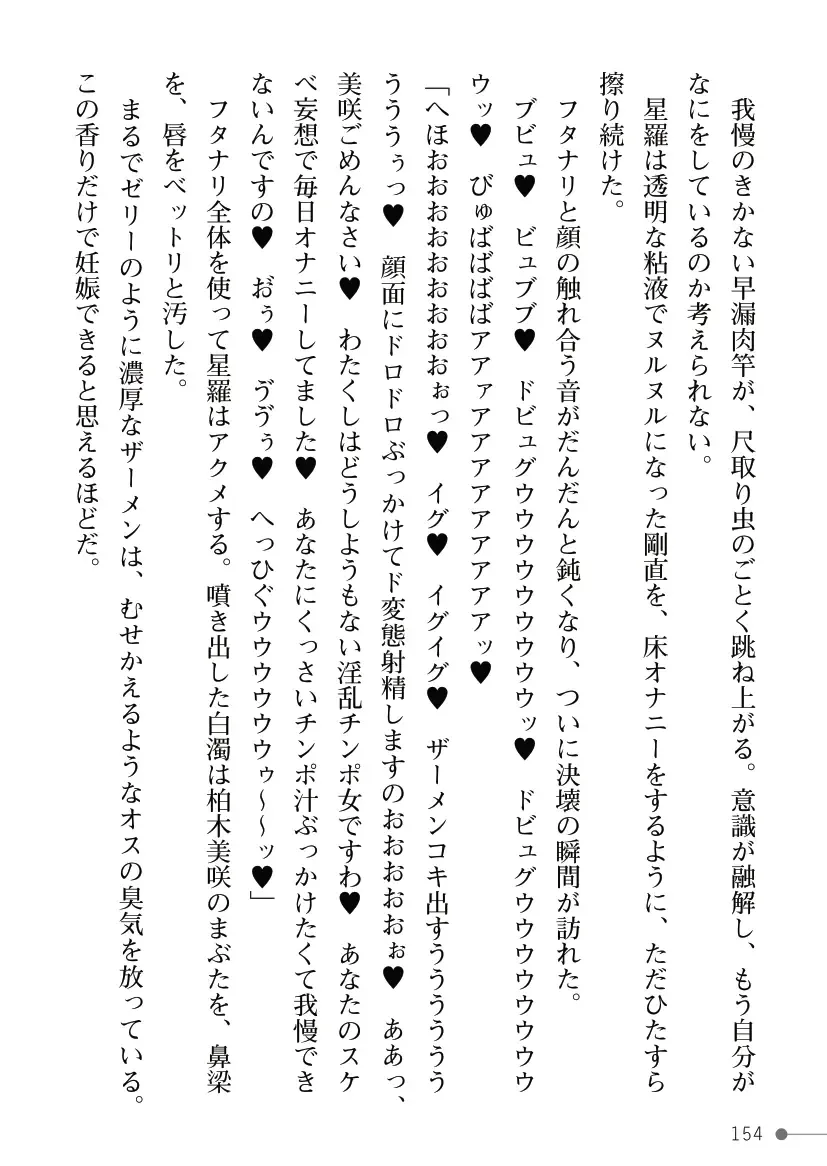 我慢のきかない早漏肉竿が、尺取り虫のごとく跳ね上がる。意識が融解し、もう自分が
なにをしているのか考えられない。
星羅は透明な粘液でヌルヌルになった剛直を、床オナニーをするように、ただひたすら
擦り続けた。
フタナリと顔の触れ合う音がだんだんと鈍くなり、ついに決壊の瞬間が訪れた。
ブビュ♥　ビュブブ♥　ドビュグウウウウウウウウウッ♥　ドビュグウウウウウウウウ
ウッ♥　びゅばばばばアアァアアアアアアアアアッ♥
「へほおおおおおおおおおおぉっ♥　イグ♥　イグイグ♥　ザーメンコキ出すうううううう
うううぅっ♥　顔面にドロドロぶっかけてド変態射精しますのおおおおおぉ♥　ああっ、
美咲ごめんなさい♥　わたくしはどうしようもない淫乱チンポ女ですわ♥　あなたのスケ
べ妄想で毎日オナニーしてました♥　あなたにくっさいチンポ汁ぶっかけたくて我慢でき
ないんですの♥　お゙ぅ♥　ゔゔぅ♥　へっひぐウウウウウウゥ～～ッ♥」
フタナリ全体を使って星羅はアクメする。噴き出した白濁は柏木美咲のまぶたを、鼻梁
を、唇をベットリと汚した。
まるでゼリーのように濃厚なザーメンは、むせかえるようなオスの臭気を放っている。
この香りだけで妊娠できると思えるほどだ。
154